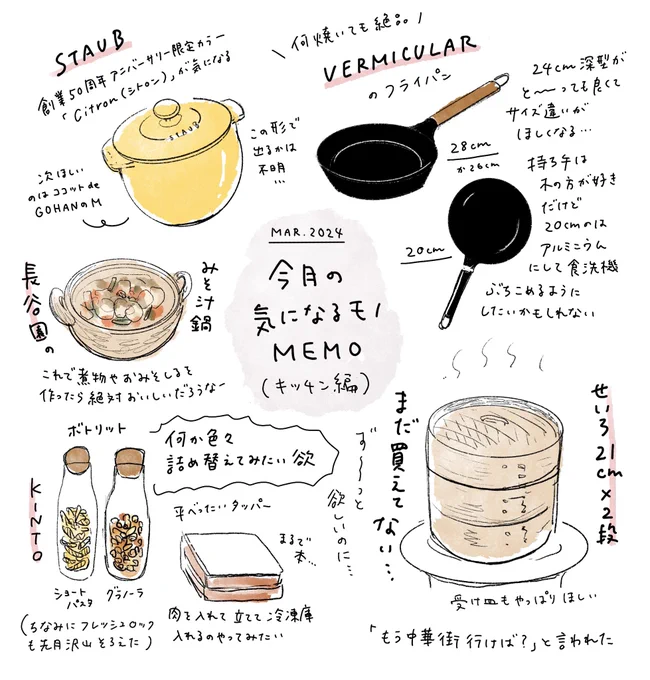 STAUB
創業50周年アニバーサリー限定カラー
「Citron(シトロン)」が気になる
STAUB
この形で
出るかは
不明
…
次ほしい
のはココットde
GOHANのM
\ 何焼いても絶品 /
VERMICULAR
のフライパン
24cm深型が
と〜〜っても良くて
サイズ違いが
ほしくなる…
28cm
か26cm
持ち手は
木の方が好き
だけど
20cmのは
アルミニウム
にして食洗機
ぶちこめるように
したいかもしれない
20cm
MAR.2024
今月の
気になるモノ
MEMO
(キッチン編)
長谷園の
みそ汁鍋
これで煮物やおみそしるを
作ったら絶対おいしいだろうなー
ボトリット
KINTO
ショート
パスタ
グラノーラ
(ちなみにフレッシュロック
も先月沢山そろえた)
何か色々
詰め替えてみたい欲
平べったいタッパー
まるで
本…
肉を入れて立てて冷凍庫
入れるのやってみたい
せいろ21cm×2段
まだ買えてない…
ず〜〜っと
欲しいのに…
受け皿もやっぱりほしい
「もう中華街行けば?」と言われた